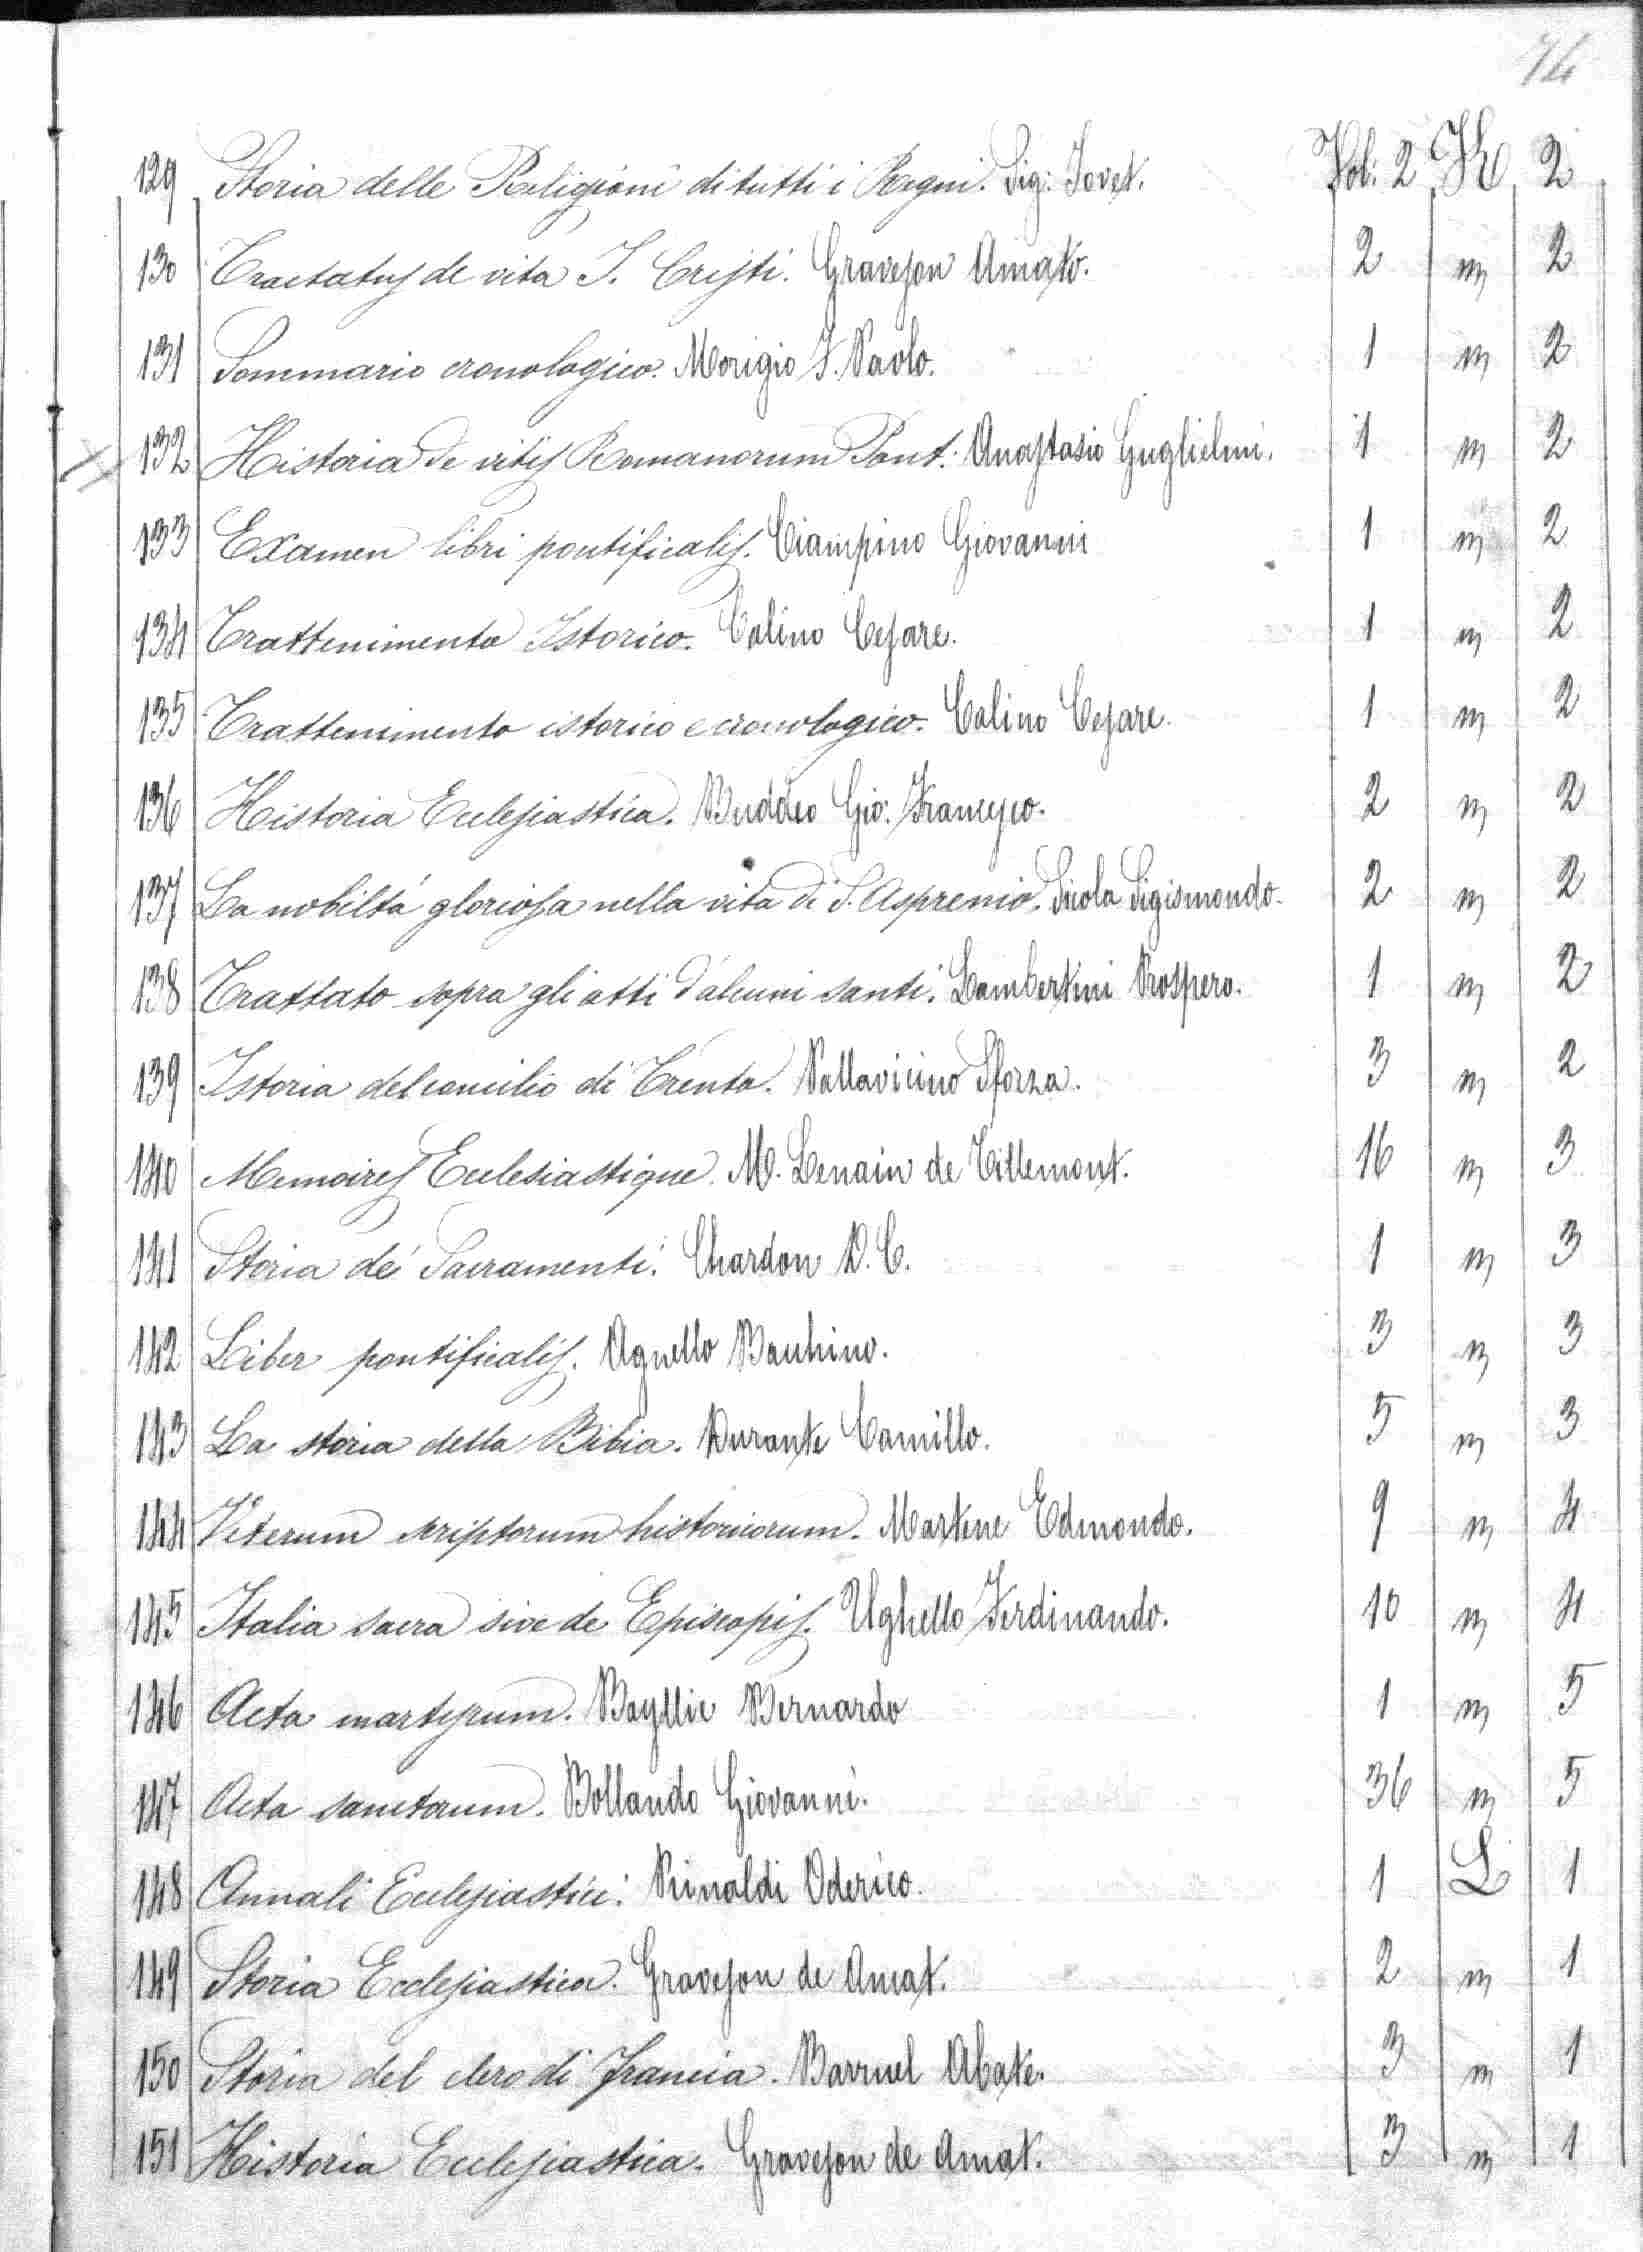 74
129 Storia delle Religioni di tutti i Regni. Sig: Jovet. Vol: 2 K 2
130 Tractatus de vita J. Cristi. Graveson Amato. 2 m 2
131 Sommario cronologico. Morigio F. Paolo. 1 m 2
132 Historia de vitis Romanorum Pont: Anastasio Guglielmi. 1 m 2
133 Examen libri pontificalis. Ciampino Giovanni 1 m 2
134 Trattenimento Istorico. Calino Cesare. 1 m 2
135 Trattenimento istorico e cronologico. Calino Cesare. 1 m 2
136 Historia Ecclesiastica. Buddeo Gio: Francesco. 2 m 2
137 La nobiltá gloriosa nella vita di S. Aspremo. Sicola Sigismondo. 2 m 2
138 Trattato sopra gli atti d'alcuni santi. Lambertini Prospero. 1 m 2
139 Istoria del concilio di Trento. Pallavicino Sforza. 3 m 2
140 Memoires Ecclesiastique. M. Lenain de Tillemont. 16 m 3
141 Storia dé Sacramenti. Chardon D. C. 1 m 3
142 Liber pontificalis. Agnello Bauhino. 3 m 3
143 La storia della Bibia. Durante Camillo. 5 m 3
144 Veterum scriptorum historicorum. Martene Edmondo. 9 m 4
145 Italia sacra sive de Episcopis. Ughello Ferdinando. 10 m 4
146 Acta martyrum. Bayllie Bernardo 1 m 5
147 Acta sanctorum. Bollando Giovanni. 36 m 5
148 Annali Ecclesiastici. Rinaldi Oderico. 1 L 1
149 Storia Ecclesiastica. Graveson de Amat. 2 m 1
150 Storia del clero di Francia. Barruel Abate. 3 m 1
151 Historia Ecclesiastica. Graveson de Amat. 3 m 1